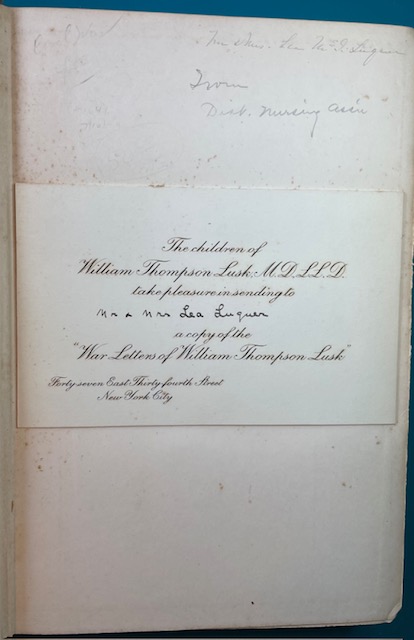 Mr & Mrs. Lea McI. Luquer
From
Dist. Nursing Ass'n
The children of
William Thompson Lusk, M.D., LL.D.
take pleasure in sending to
Mr & Mrs Lea Luquer
a copy of the
"War Letters of William Thompson Lusk"
Forty-seven East Thirty-fourth Street
New York City